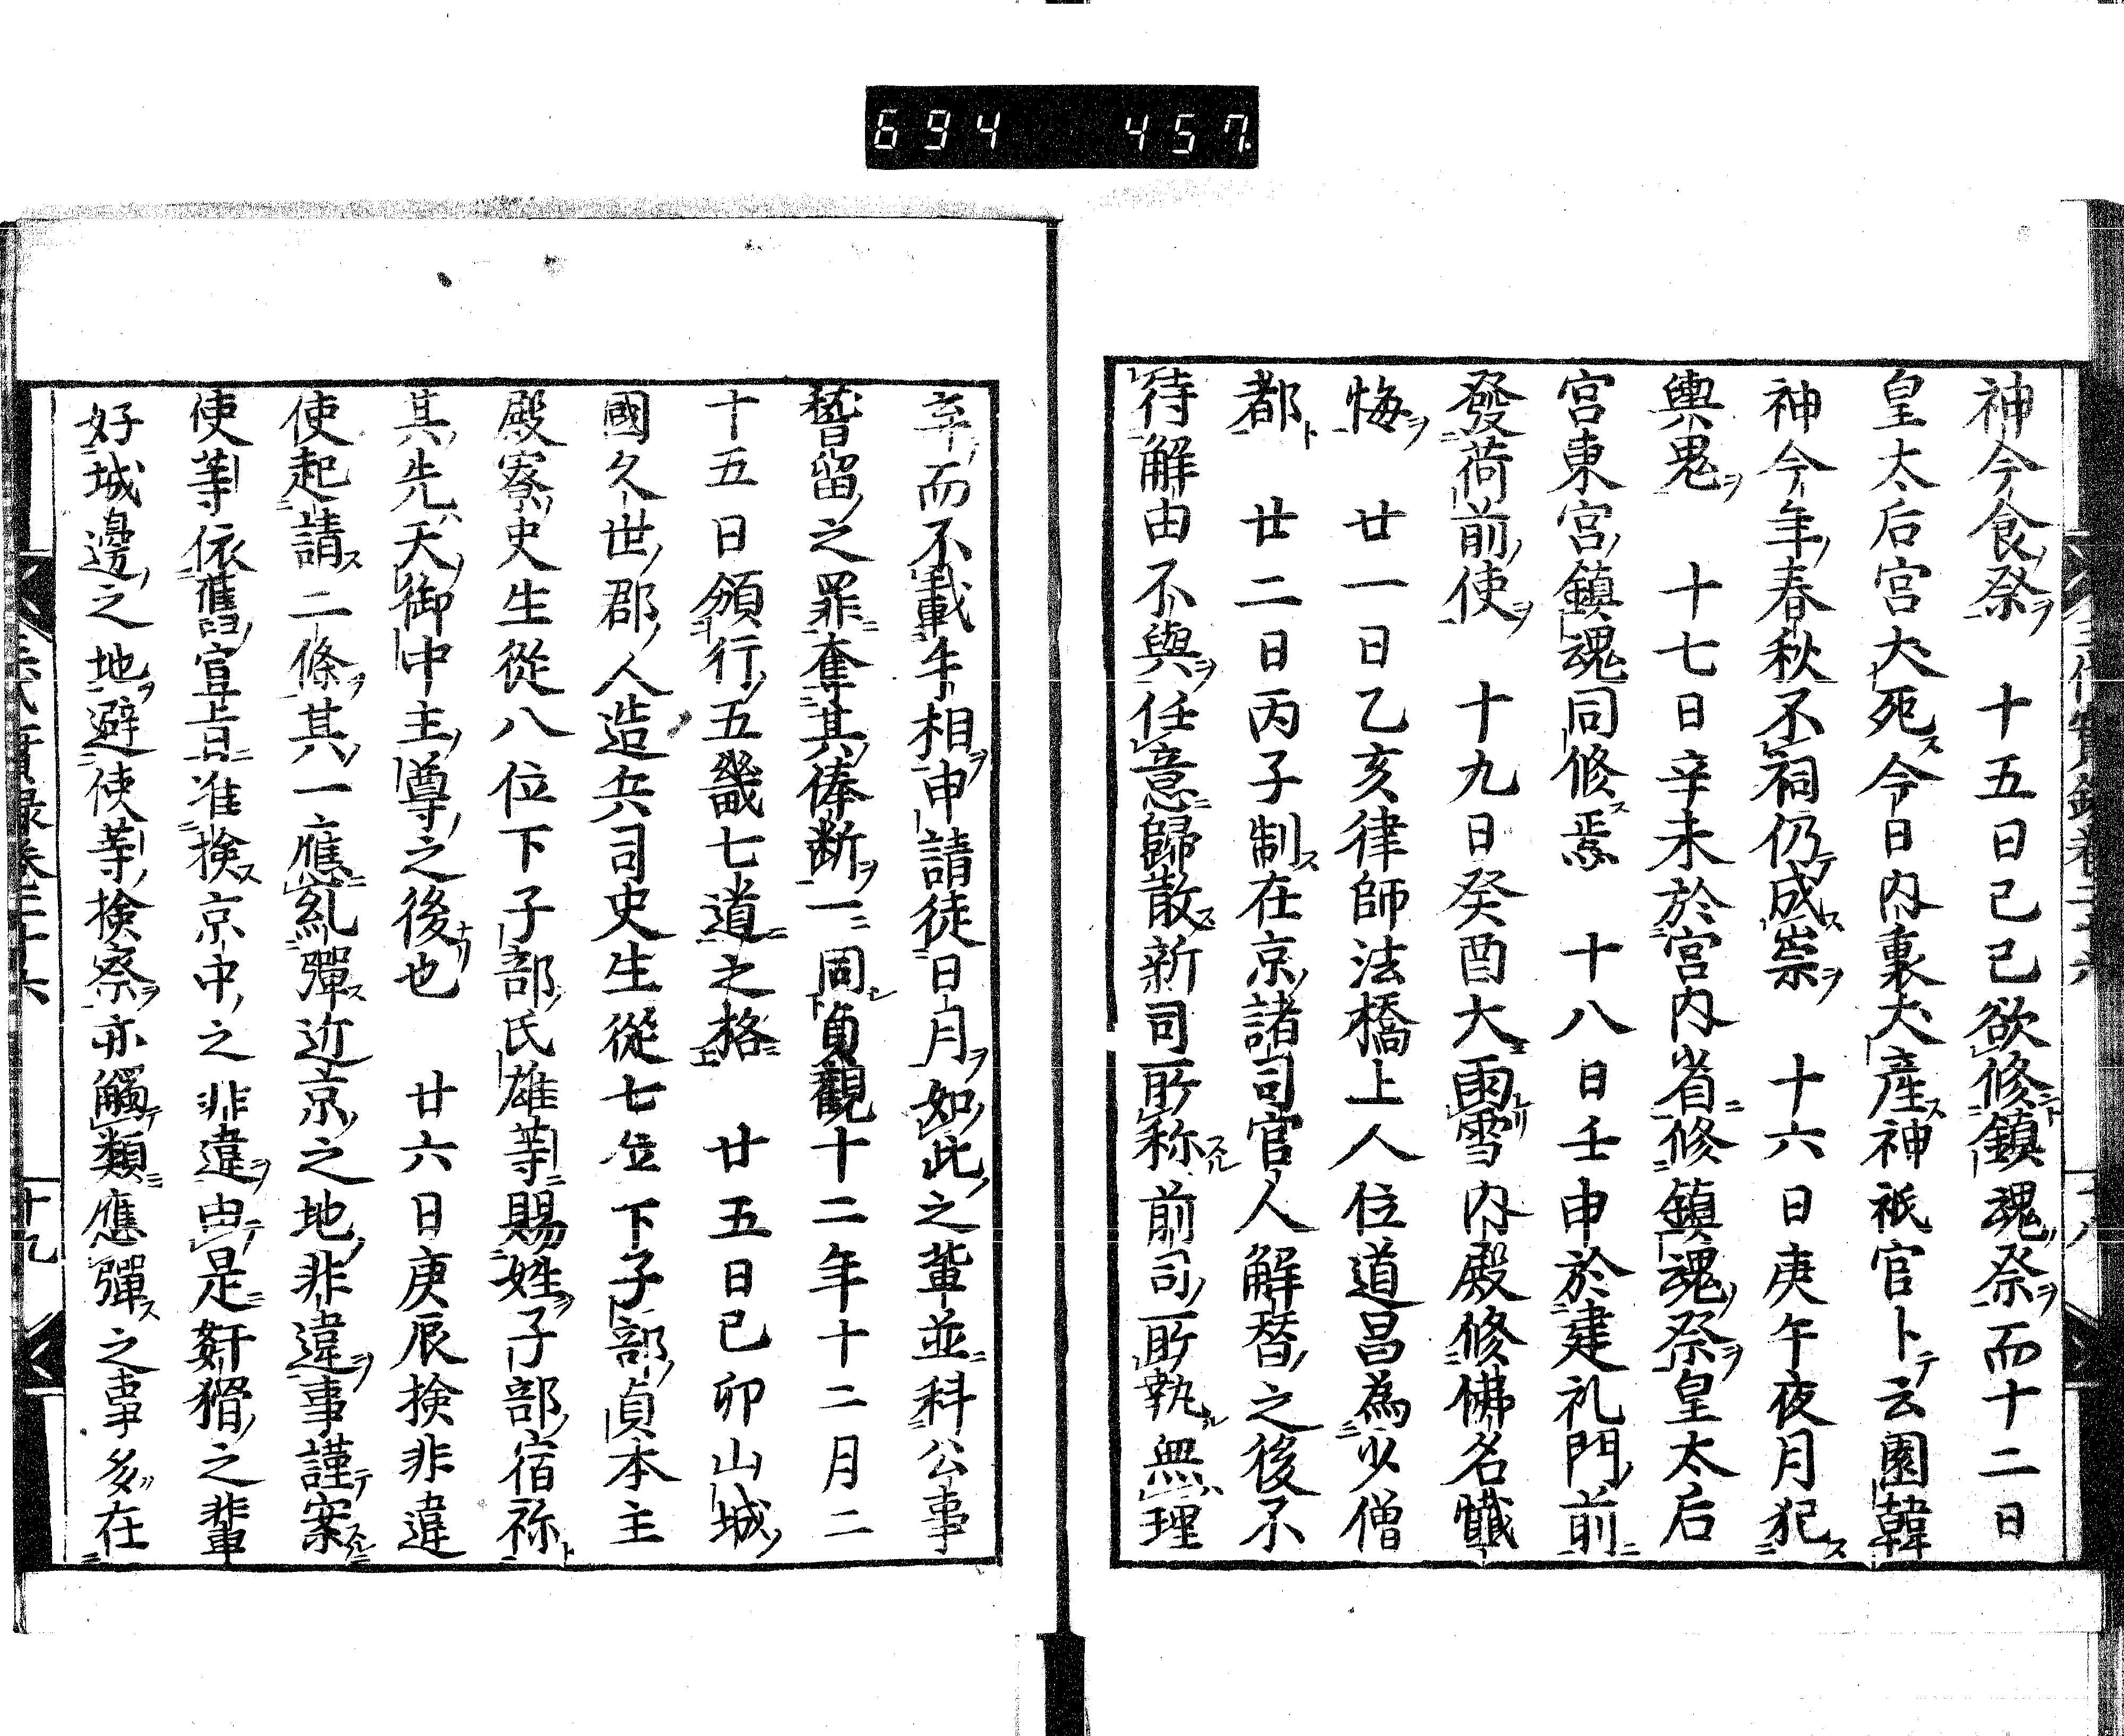 694 457.
神今食祭 十五日己巳欲修鎮魂祭而十二日
皇太后宮犬死今日内裏犬產神祇官卜云園韓
神今年春秋不祠仍成祟 十六日庚午夜月犯
輿鬼 十七日辛未於宮内省修鎮魂祭皇太后
宮東宮鎮魂同修焉 十八日壬申於建礼門前
發荷前使 十九日癸酉大雨雪内殿修佛名懺
悔 廿一日乙亥律師法橋上人位道昌為少僧
都 廿二日丙子制在京諸司官人解替之後不
待解由不與任意歸散新司所称前司所執無理
弃而不載年相申請徒日月如此之輩並科公事
稽留之罪奪其俸断一同貞觀十二年十二月二
十五日頒行五畿七道之格 廿五日己卯山城
國久世郡人造兵司史生從七位下子部貞本主
殿寮史生從八位下子部氏雄等賜姓子部宿祢
其先天御中主尊之後也 廿六日庚辰検非違
使起請二條其一應糺彈近京之地非違事謹案
使等依舊記宣旨准検京中之非違由是姧猾之輩
好城邊之地避使等検察亦觸類應彈之事多在
三代實録卷二十六 十八
三代實録卷二十六 十九